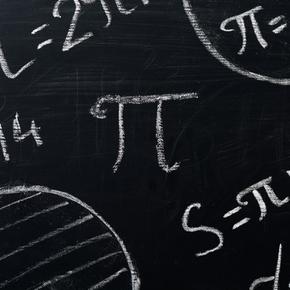 L=2πr
π=
14
π
S=π